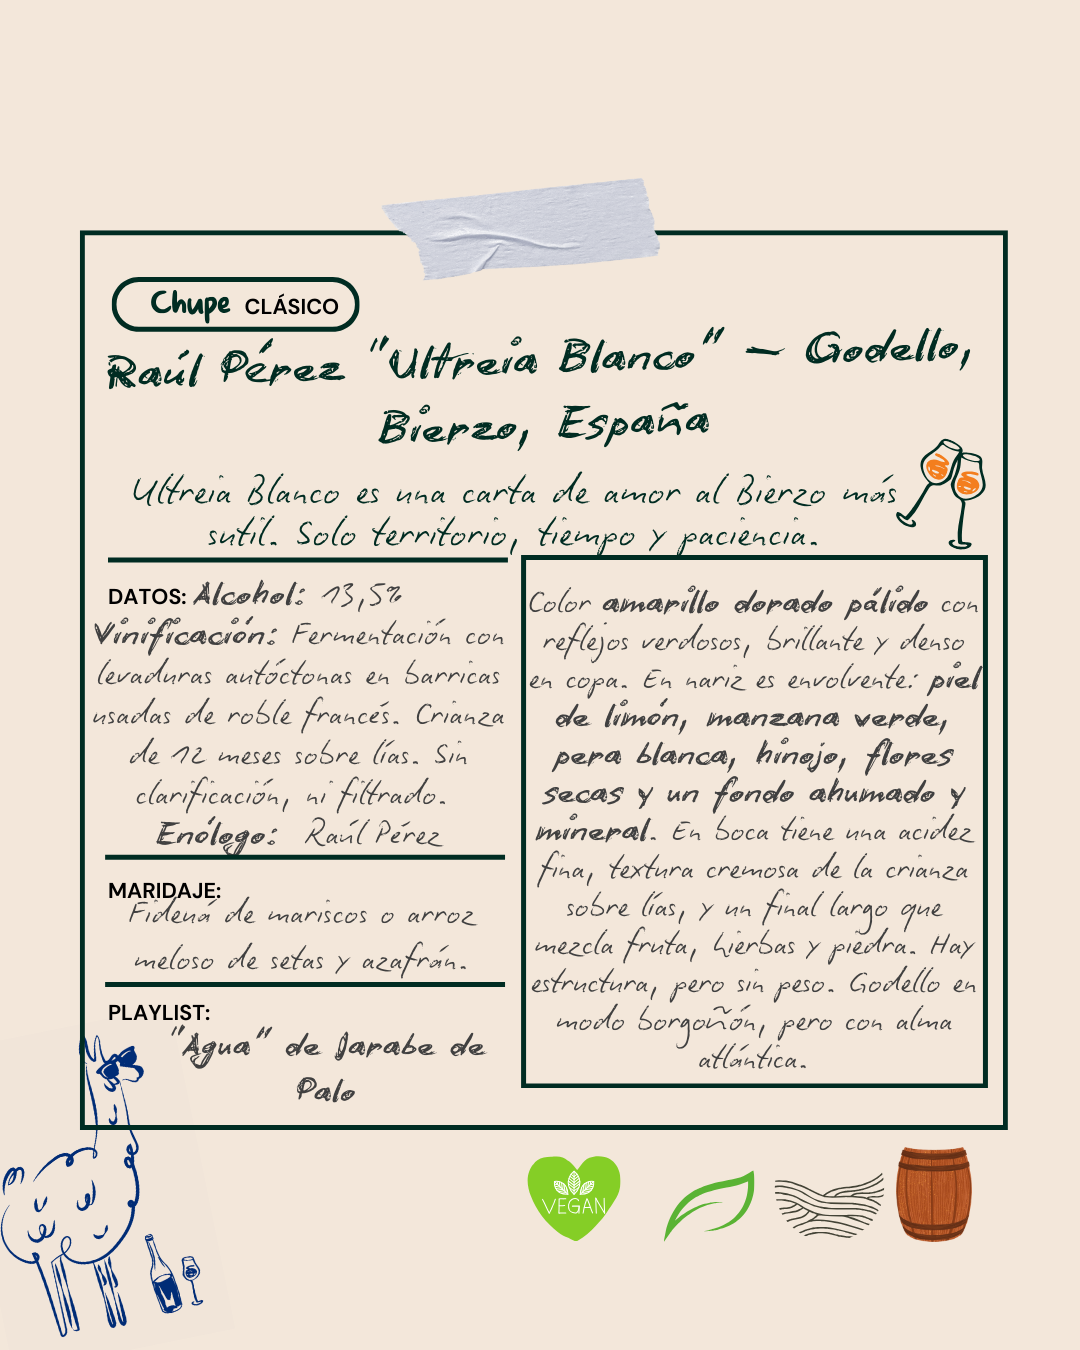 Chupe CLÁSICO
Raúl Pérez "Ultreia Blanco" – Godello,
Bierzo, España
Ultreia Blanco es una carta de amor al Bierzo más
sutil. Solo territorio, tiempo y paciencia.
DATOS: Alcohol: 13,5%
Vinificación: Fermentación con
levaduras autóctonas en barricas
usadas de roble francés. Crianza
de 12 meses sobre lías. Sin
clarificación, ni filtrado.
Enólogo: Raúl Pérez
MARIDAJE:
Fideuá de mariscos o arroz
meloso de setas y azafrán.
PLAYLIST:
"Agua" de Jarabe de
Palo
Color amarillo dorado pálido con
reflejos verdosos, brillante y denso
en copa. En nariz es envolvente: piel
de limón, manzana verde,
pera blanca, hinojo, flores
secas y un fondo ahumado y
mineral. En boca tiene una acidez
fina, textura cremosa de la crianza
sobre lías, y un final largo que
mezcla fruta, hierbas y piedra. Hay
estructura, pero sin peso. Godello en
modo borgoñón, pero con alma
atlántica.
VEGAN